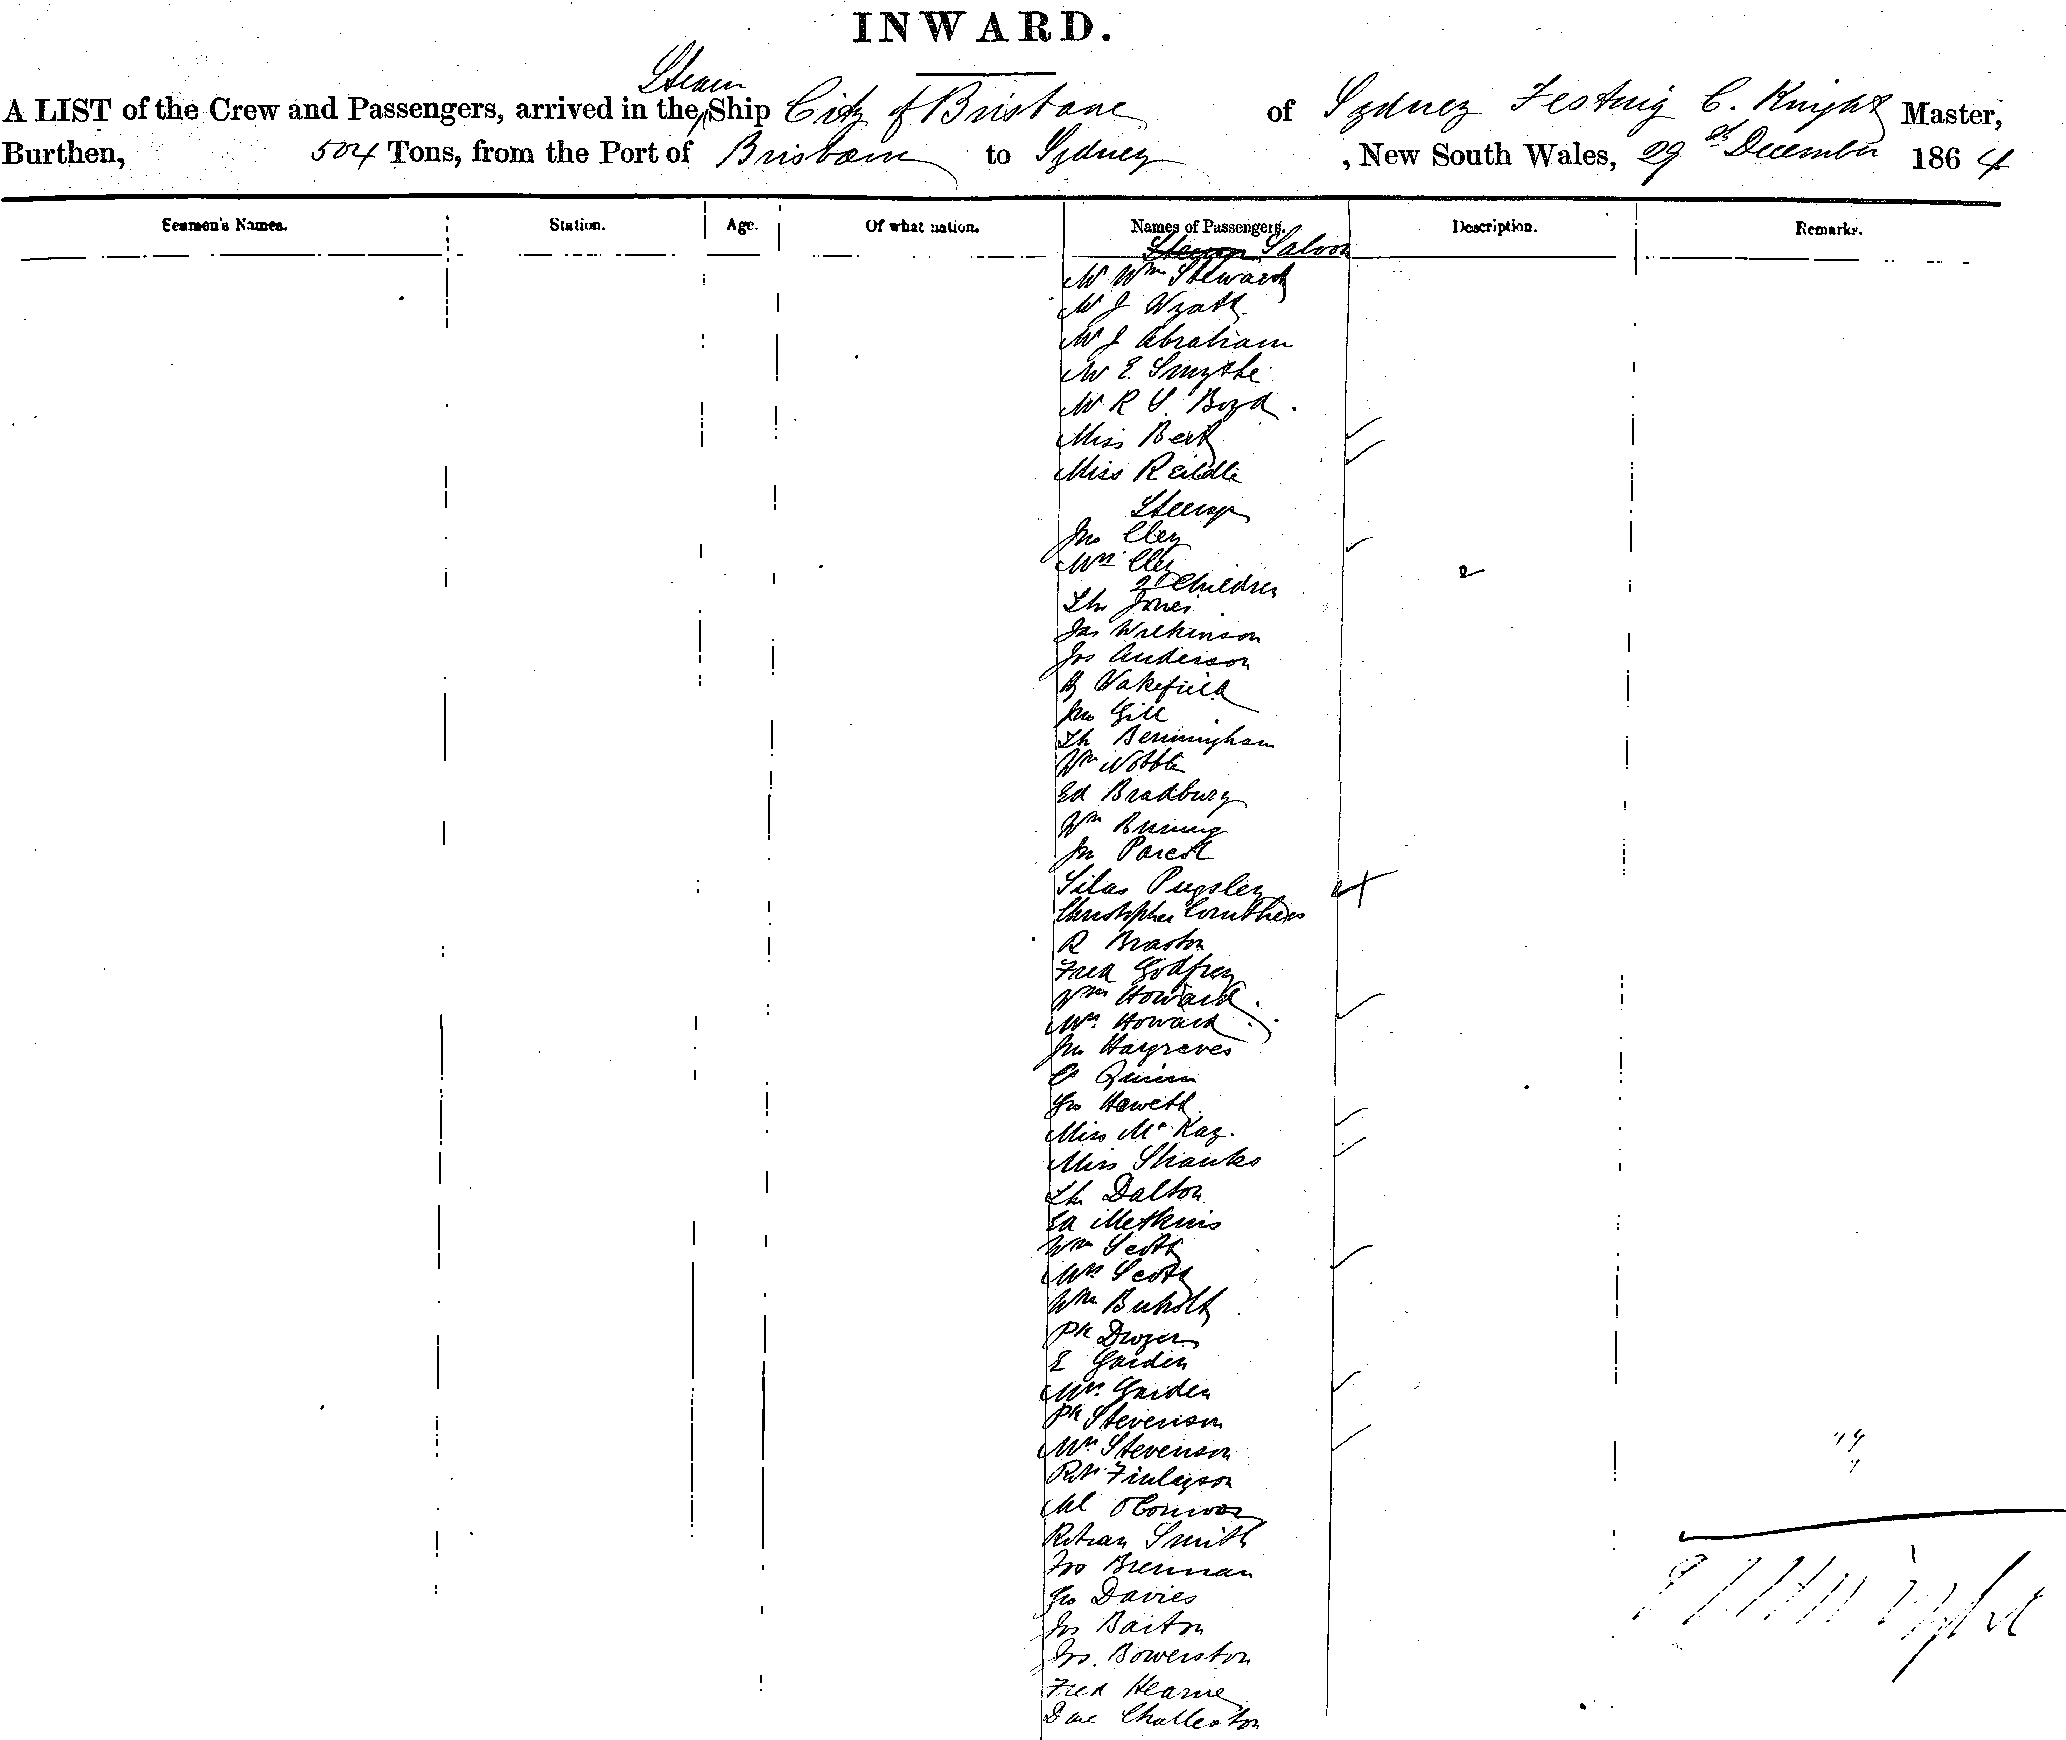 INWARD.
Steam
A LIST of the Crew and Passengers, arrived in the Ship City of Brisbane of Sydney C. Knight Master,
Burthen, 504 Tons, from the Port of Brisbane to Sydney , New South Wales, 29 December 1864
Seamen's Names. Station. Age. Of what nation. Names of Passengers. Description. Remarks.
Saloon
Mr Wm Steward
Mr J Wyatt
Mr J Abraham
Mr E. Smythe
Mr R S. Boyd.
Miss Bert
Miss
Steerage
Jno Cley
Mrs Cley
2 Children 2
Th Jones
Jas Wilkinson
Jos Anderson
Hy Wakefield
Jno Gill
Th Bermingham
Wm Nobbte
Ed Bradbury
Wm
Jn
Silas Pugsley
Christopher
R Braston
Fred Godfrey
Wm Howard
Mrs Howard
Jno Hargreves
Quinn
Geo Hewett
Miss McKay.
Miss Shanks
Th Dalton
Ed Metkins
Wm Scott
Mrs Scott
Wm
Pk Dwyer
E Garden
Mrs Garden
Pk Stevenson
Mrs Stevenson
Rt Finlayson
Ml OConnor
Smith
Jos Brennan
Geo Davies
Jos Barton
Jos. Bowerston
Fred Hearne
Challeston